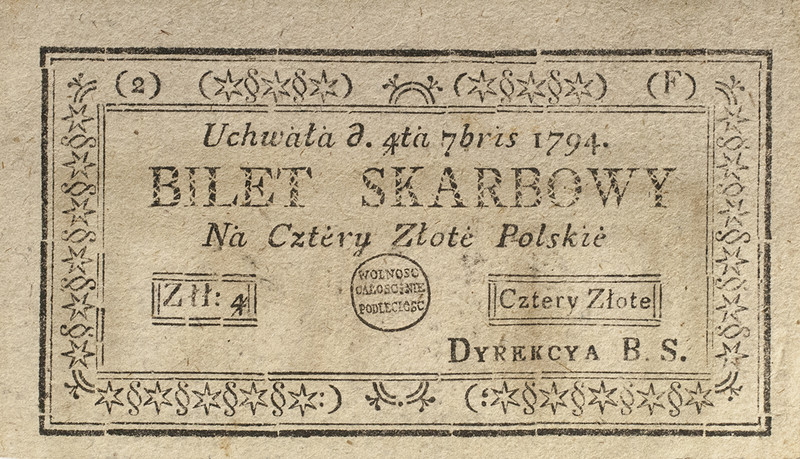 (2) (F)
Uchwała d. 4ta 7bris 1794.
BILET SKARBOWY
Na Cztéry Złote Polskié
Złł: 4
WOLNOSC
CAŁOSC:NIE
PODLEGŁOŚĆ
Cztery Złote
DYREKCYA B. S.